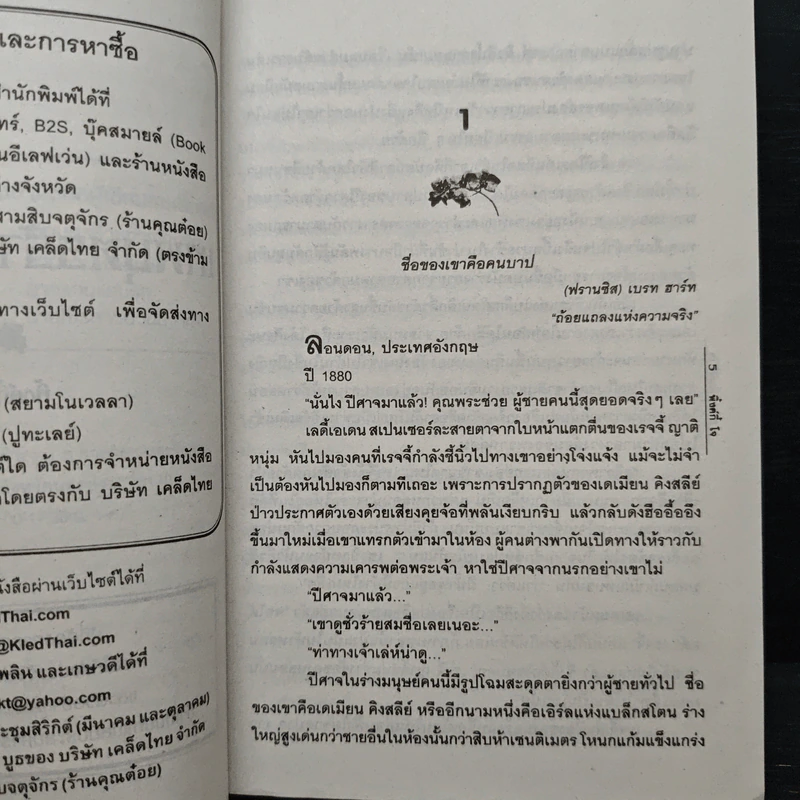 ละการหาซื้อ
ำนักพิมพ์ได้ที่
ทร์, B2S, บุ๊คสมายล์ (Book
นอีเลฟเว่น) และร้านหนังสือ
่างจังหวัด
ามสิบจตุจักร (ร้านคุณต๋อย)
ษัท เคล็ดไทย จำกัด (ตรงข้าม
ทางเว็บไซต์ เพื่อจัดส่งทาง
(สยามโนเวลลา)
(ปูทะเลย์)
ต้องการจำหน่ายหนังสือ
โดยตรงกับ บริษัท เคล็ดไทย
ังสือผ่านเว็บไซต์ได้ที่
Thai.com
@KledThai.com
พลิน และเกษวดีได้ที่
kt@yahoo.com
ะชุมสิริกิต์ (มีนาคม และตุลาคม)
บูธของ บริษัท เคล็ดไทย จำกัด
จตุจักร (ร้านคุณต๋อย)
1
ชื่อของเขาคือคนบาป
(ฟรานซิส) เบรท ฮาร์ท
“ถ้อยแถลงแห่งความจริง”
ลอนดอน, ประเทศอังกฤษ
ปี 1880
“นั่นไง ปีศาจมาแล้ว! คุณพระช่วย ผู้ชายคนนี้สุดยอดจริงๆ เลย”
เลดี้เอเดน สเปนเซอร์ละสายตาจากใบหน้าแตกตื่นของเรจจี้ ญาติ
หนุ่ม หันไปมองคนที่เรจจี้กำลังชี้นิ้วไปทางเขาอย่างโจ่งแจ้ง แม้จะไม่จำ
เป็นต้องหันไปมองก็ตามทีเถอะ เพราะการปรากฏตัวของเดเมียน คิงสลีย์
ป่าวประกาศตัวเองด้วยเสียงคุยจ้อที่พลันเงียบกริบ แล้วกลับดังฮืออื้ออึง
ขึ้นมาใหม่เมื่อเขาแทรกตัวเข้ามาในห้อง ผู้คนต่างพากันเปิดทางให้ราวกับ
กำลังแสดงความเคารพต่อพระเจ้า หาใช่ปีศาจจากนรกอย่างเขาไม่
“ปีศาจมาแล้ว...”
“เขาดูชั่วร้ายสมชื่อเลยเนอะ...”
“ท่าทางเจ้าเล่ห์น่าดู...”
ปีศาจในร่างมนุษย์คนนี้มีรูปโฉมสะดุดตายิ่งกว่าผู้ชายทั่วไป ชื่อ
ของเขาคือเดเมียน คิงสลีย์ หรืออีกนามหนึ่งคือเอิร์ลแห่งแบล็กสโตน ร่าง
ใหญ่สูงเด่นกว่าชายอื่นในห้องนั้นกว่าสิบห้าเซนติเมตร โหนกแก้มแข็งแกร่ง
5